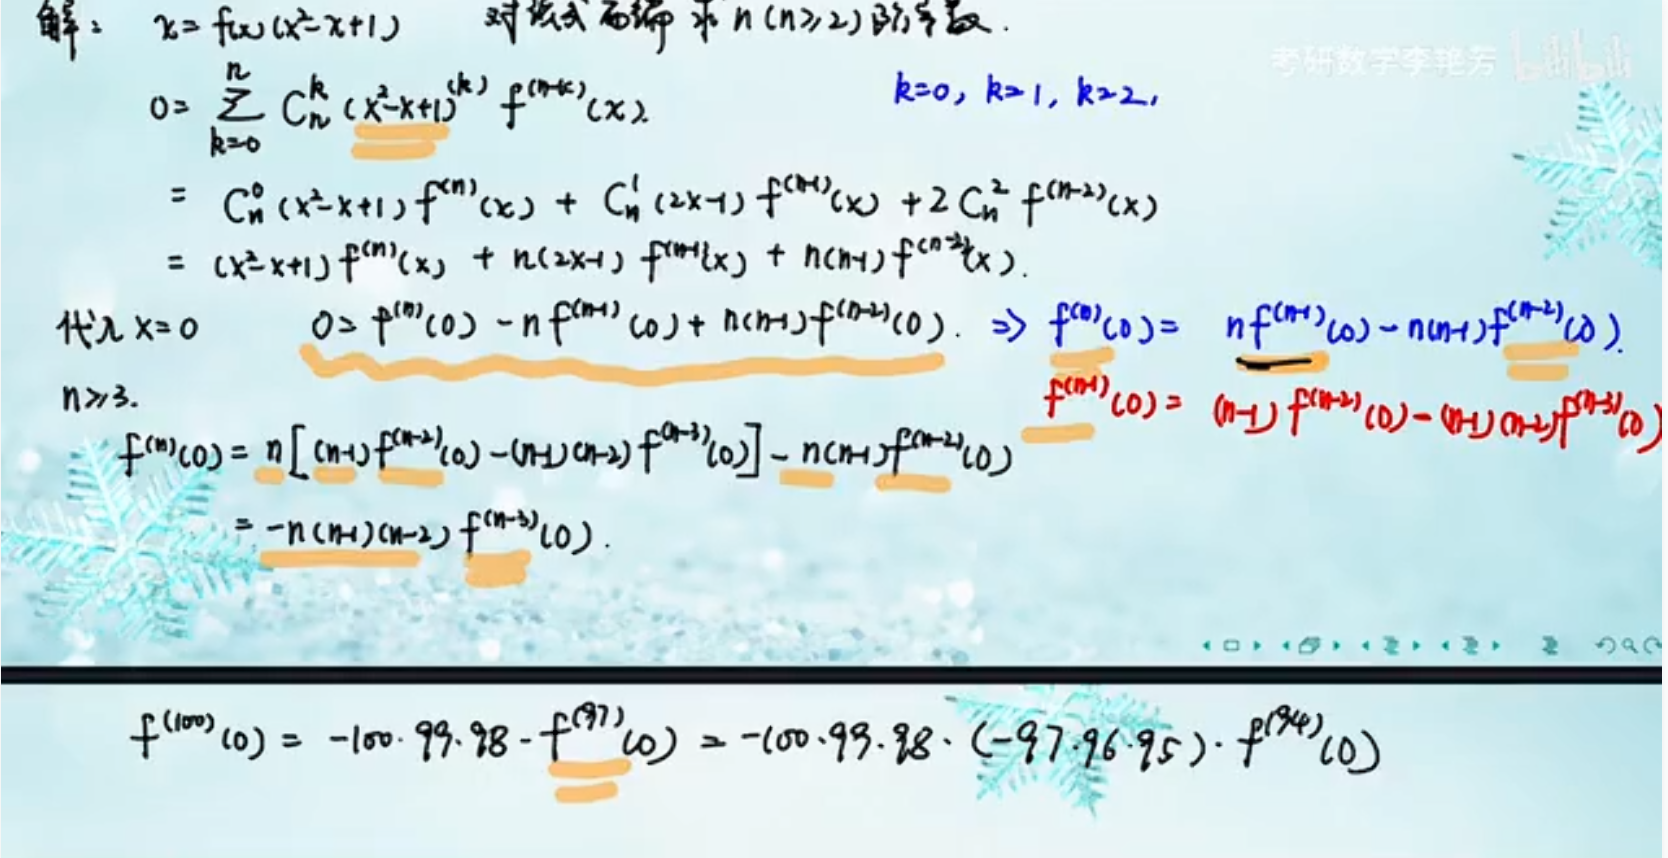 解: x = f(x)(x²-x+1) 对该式两端求n(n≥2)阶导数.
考研数学李艳芳 bilibili
0 = Σ_{k=0}^{n} C_n^k (x²-x+1)^{(k)} f^{(n-k)}(x). k=0, k=1, k=2,
= C_n^0 (x²-x+1) f^{(n)}(x) + C_n^1 (2x-1) f^{(n-1)}(x) + 2 C_n^2 f^{(n-2)}(x)
= (x²-x+1) f^{(n)}(x) + n(2x-1) f^{(n-1)}(x) + n(n-1) f^{(n-2)}(x).
代入 x=0 0 = f^{(n)}(0) - n f^{(n-1)}(0) + n(n-1) f^{(n-2)}(0). ⇒ f^{(n)}(0) = n f^{(n-1)}(0) - n(n-1) f^{(n-2)}(0).
n≥3. f^{(n-1)}(0) = (n-1) f^{(n-2)}(0) - (n-1)(n-2) f^{(n-3)}(0)
f^{(n)}(0) = n[(n-1) f^{(n-2)}(0) - (n-1)(n-2) f^{(n-3)}(0)] - n(n-1) f^{(n-2)}(0)
= -n(n-1)(n-2) f^{(n-3)}(0).
f^{(100)}(0) = -100·99·98·f^{(97)}(0) = -100·99·98·(-97·96·95)·f^{(94)}(0)